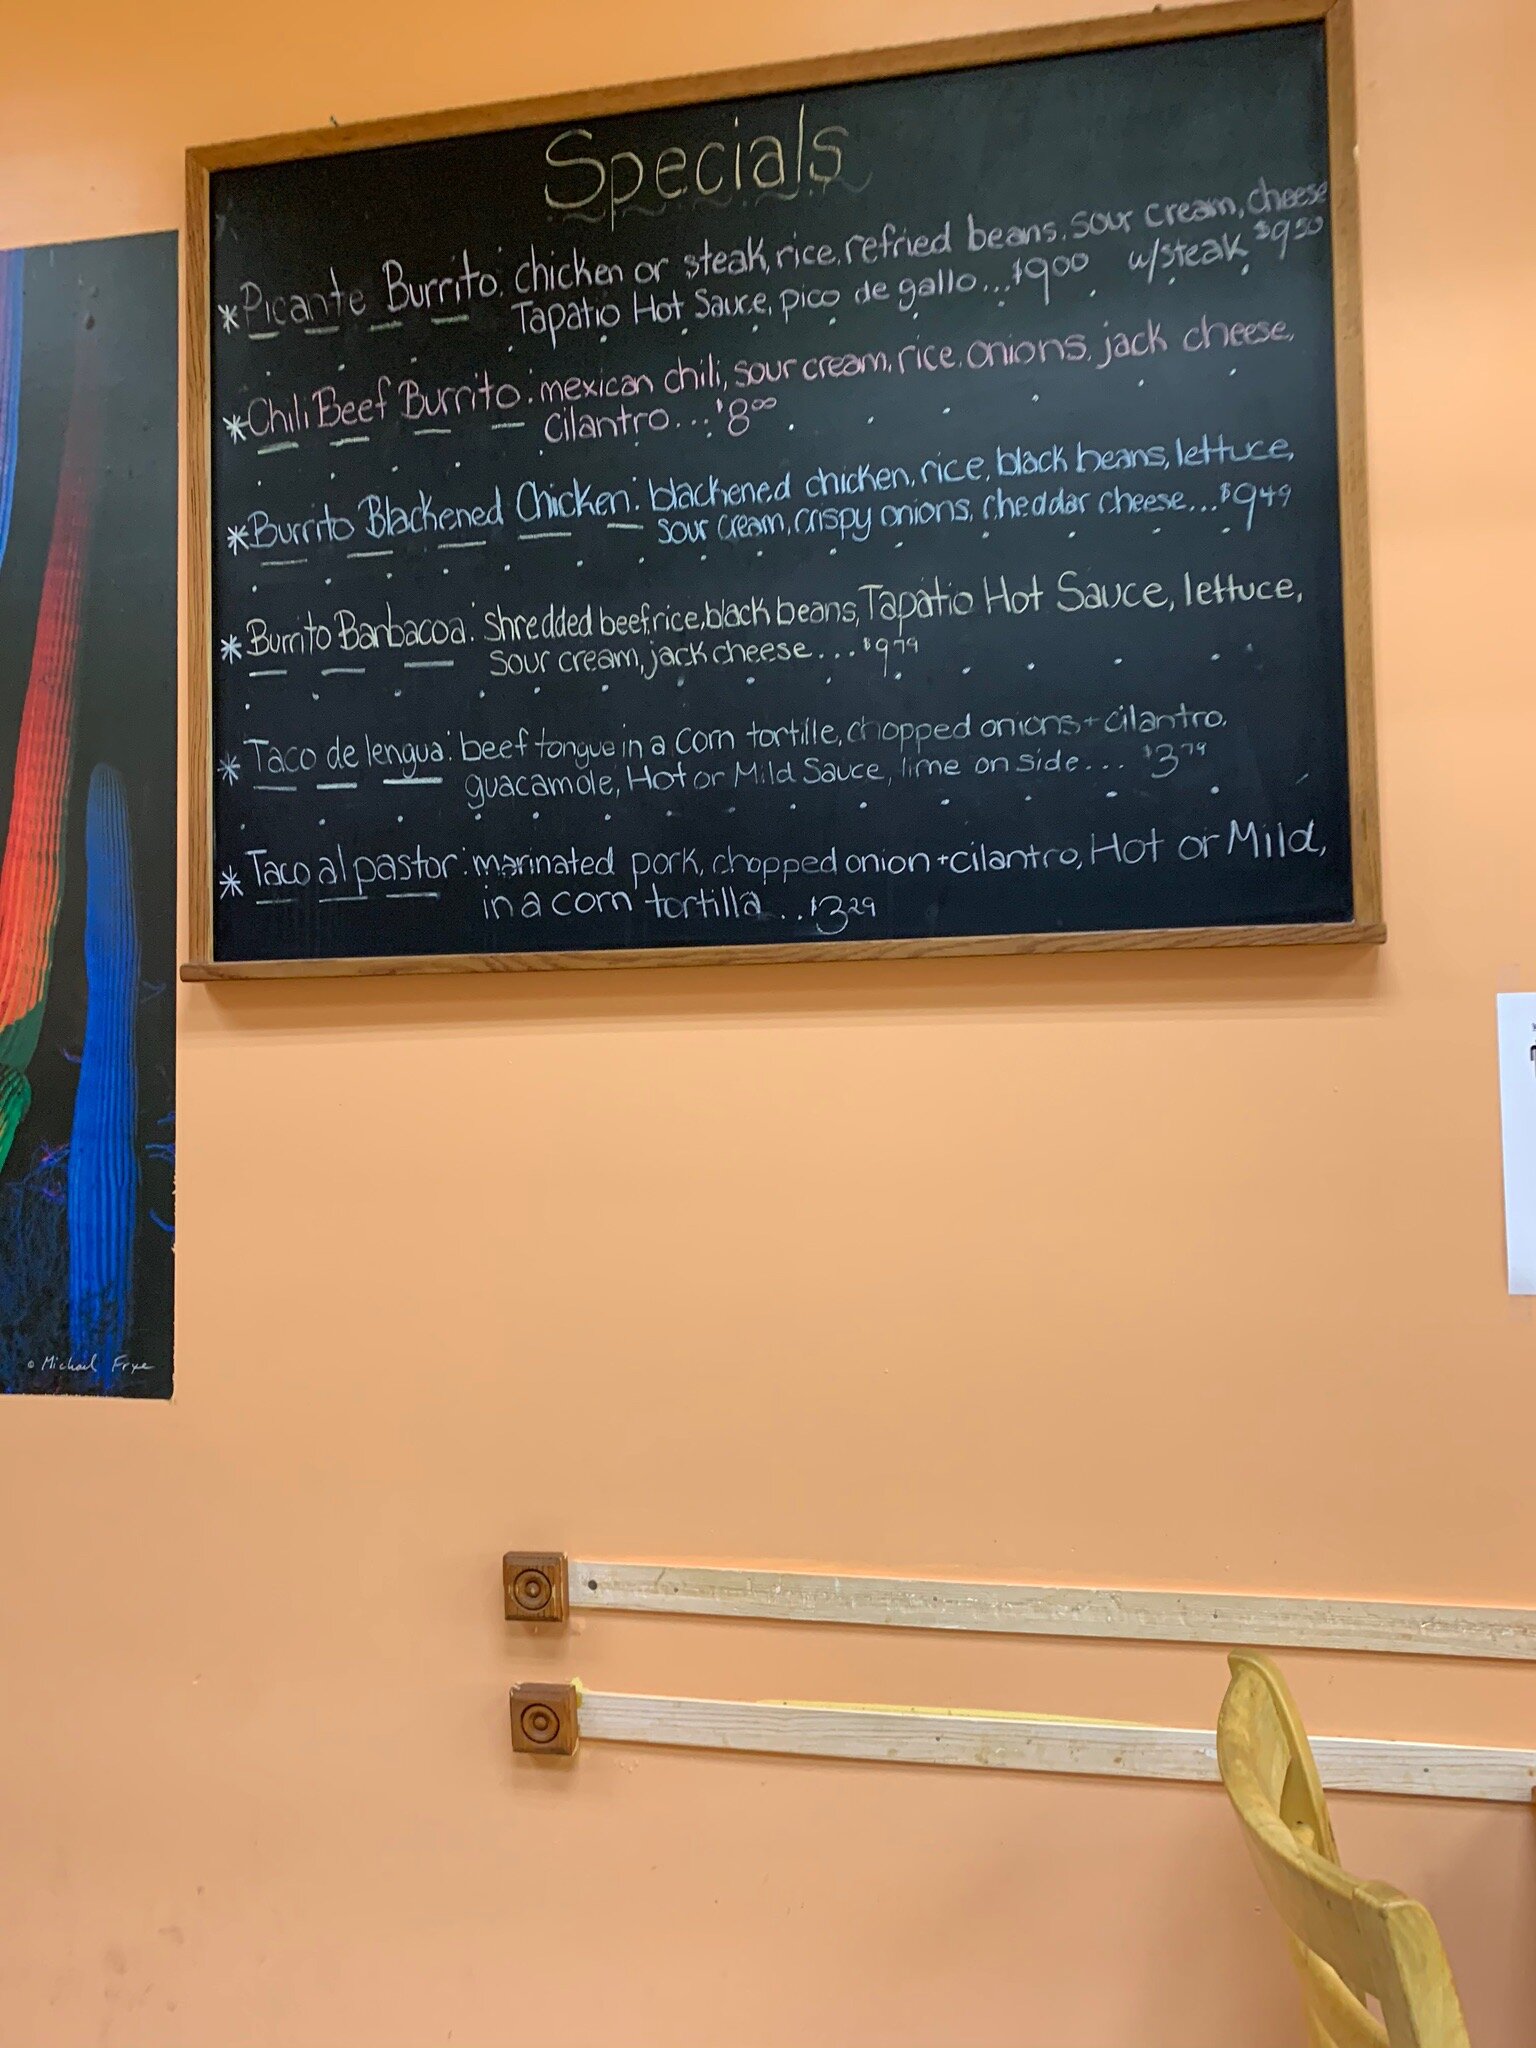 Specials
*Picante Burrito: chicken or steak, rice, refried beans, sour cream, cheese
Tapatio Hot Sauce, pico de gallo... $9.00 w/steak $9.50
*Chili Beef Burrito: mexican chili, sour cream, rice, onions, jack cheese,
cilantro... $8.00
*Burrito Blackened Chicken: blackened chicken, rice, black beans, lettuce,
sour cream, crispy onions, cheddar cheese... $9.49
*Burrito Barbacoa: shredded beef, rice, black beans, Tapatio Hot Sauce, lettuce,
sour cream, jack cheese... $9.79
*Taco de lengua: beef tongue in a corn tortille, chopped onions + cilantro,
guacamole, Hot or Mild Sauce, lime on side... $3.79
*Taco al pastor: marinated pork, chopped onion + cilantro, Hot or Mild,
in a corn tortilla... $3.29
© Michael Frye